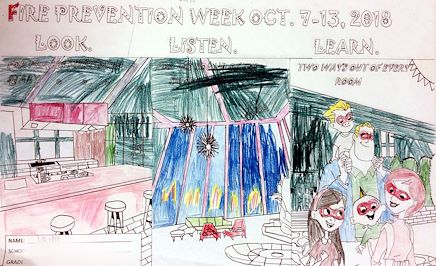 FIRE PREVENTION WEEK OCT. 7-13, 2018
LOOK. LISTEN. LEARN.
TWO WAYS OUT OF EVERY
ROOM
NAME:
SCHO
GRADE